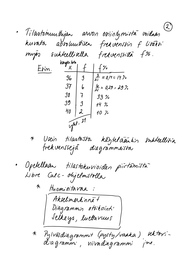 ②
• Tilastomuuttujan arvon esiintymistä voidaan
kuvata absoluuttisen frekvenssin f lisäksi
myös suhteellisella frekvenssillä f%.
Esim.
x f f%
36 3
37 6
38 7 33%
39 3 14%
40 2 10%
* Usein tilastoissa käytetäänkin suhteellisia
frekvenssejä diagrammeissa
• Opetellaan tilastokuvioiden piirtämistä
Libre Calc-ohjelmistolla
* Huomioitavaa:
Akselien nimet
Diagrammin otsikointi
Selkeys, luettavuus
* Pylväsdiagrammi (pysty/vaaka), sektori-
diagrammi, viivadiagrammi jne.